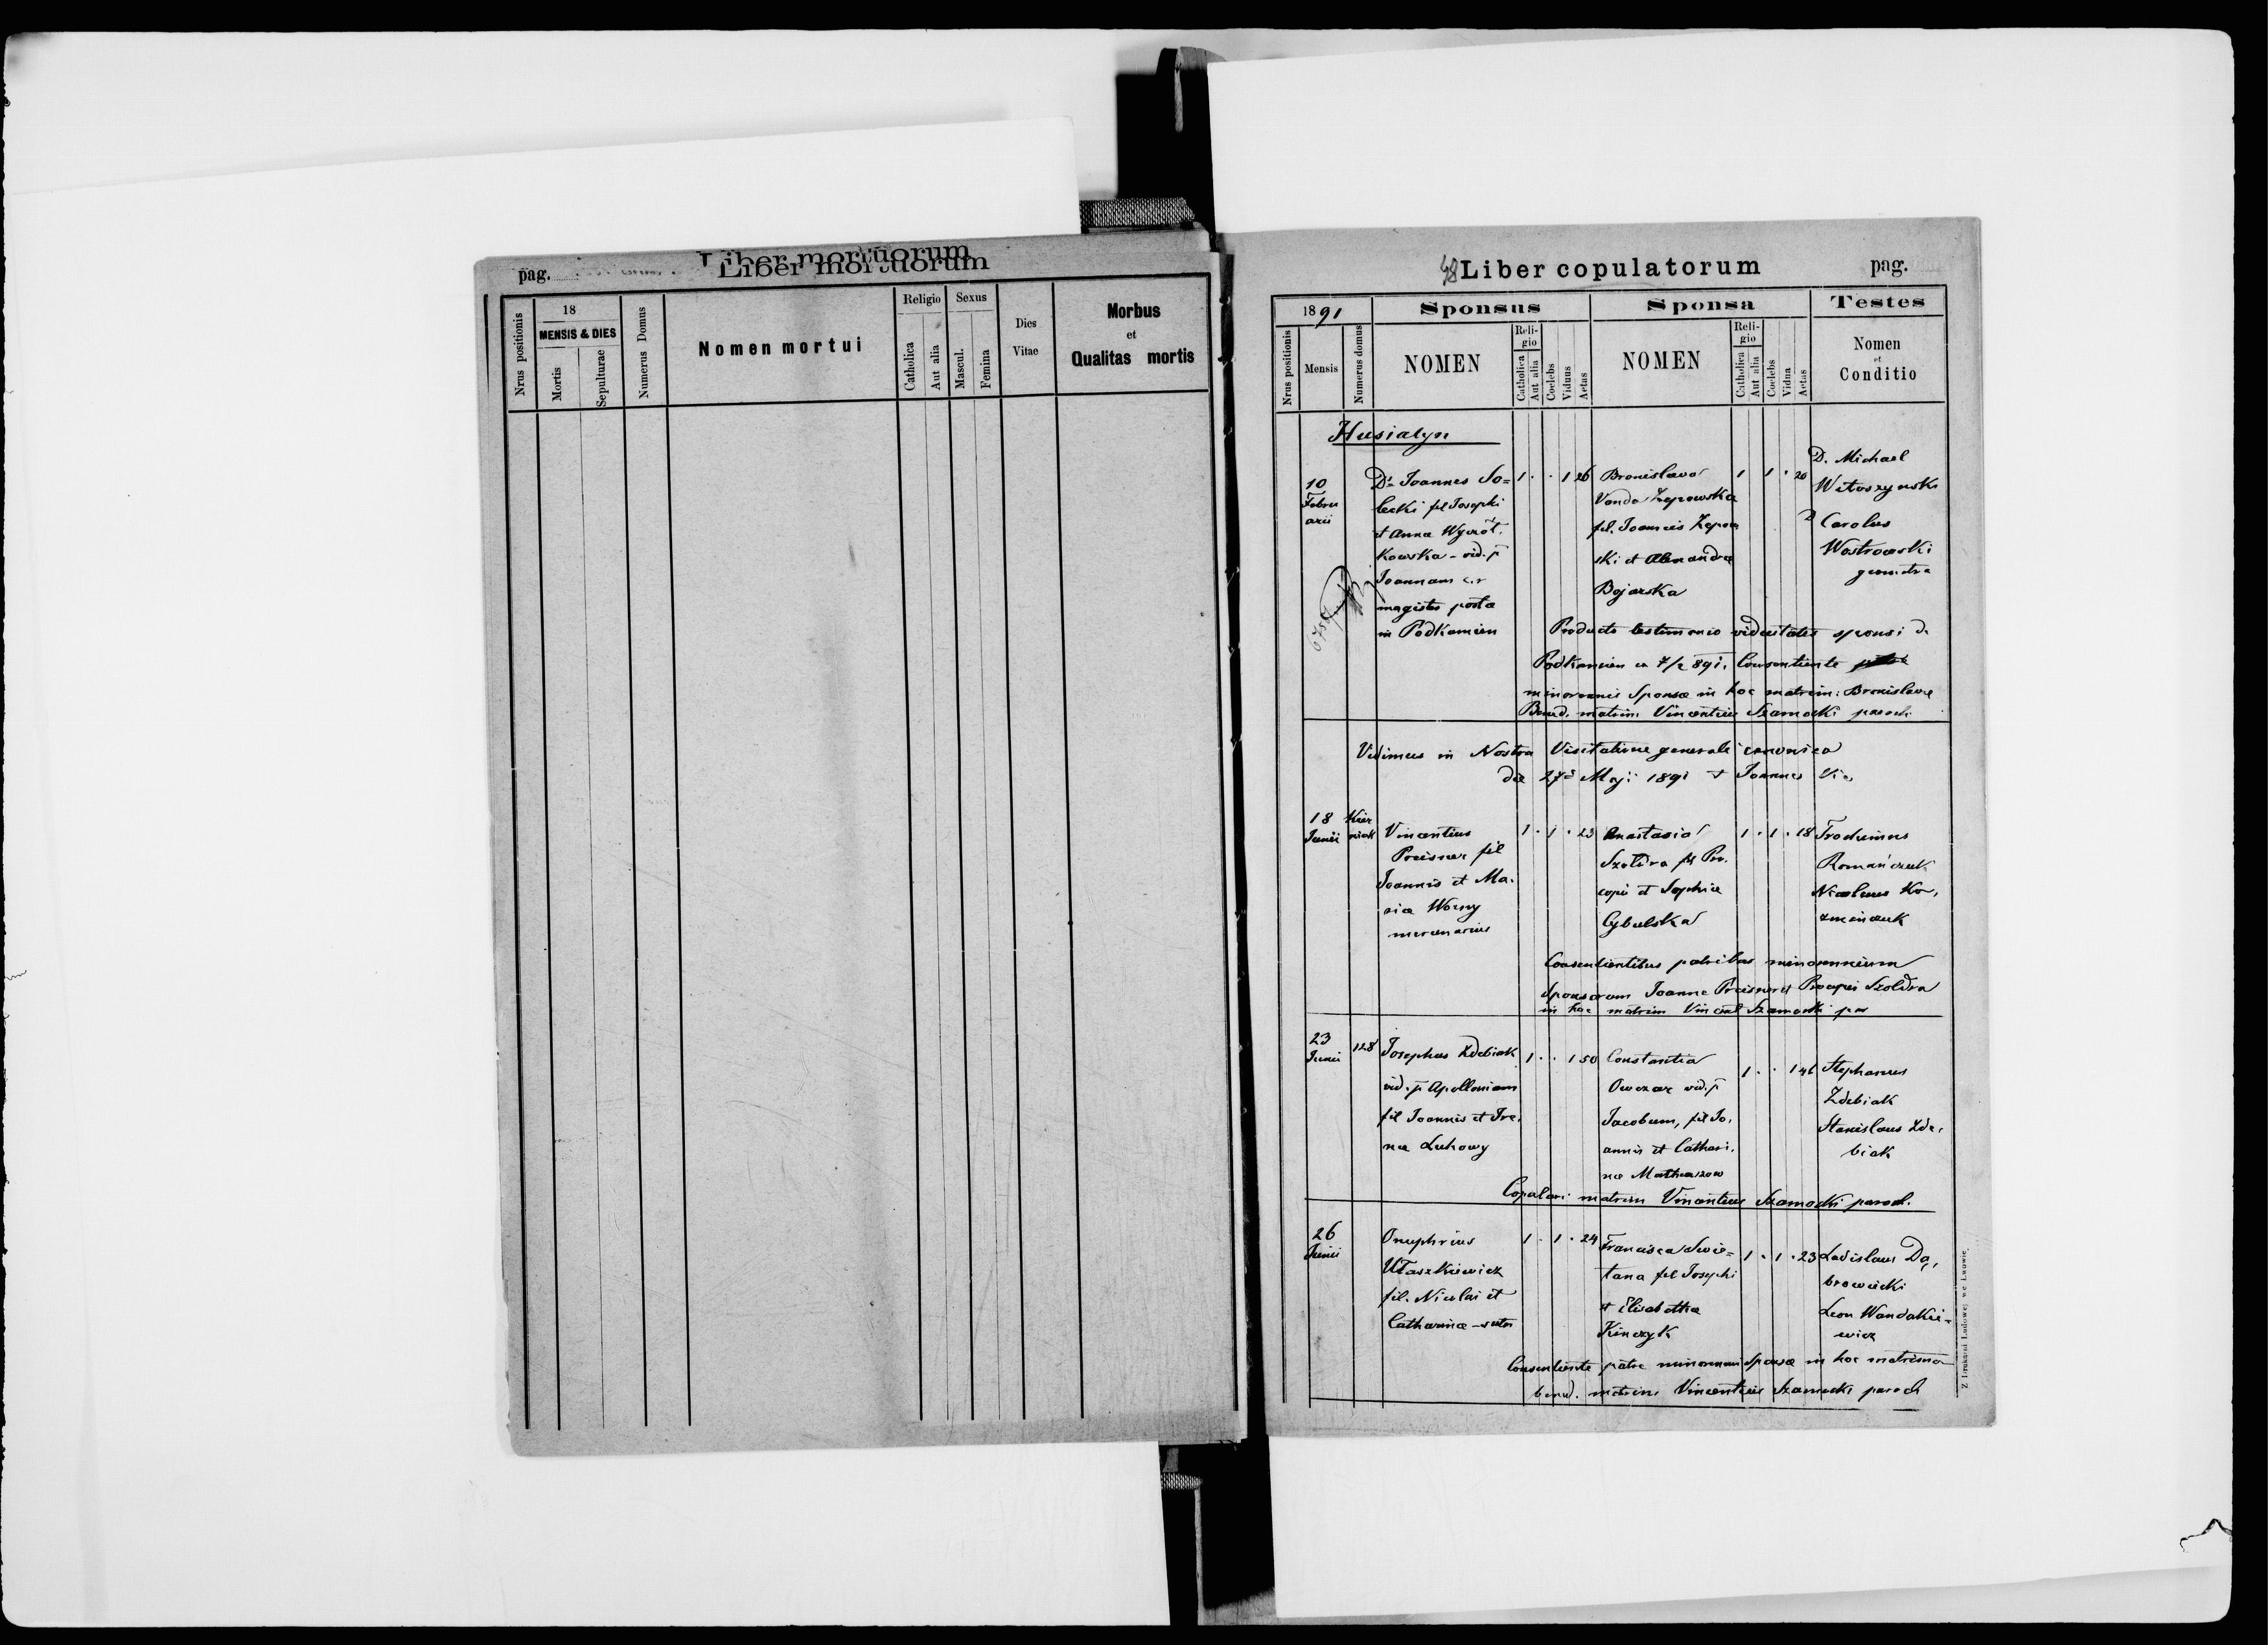 pag.
Liber mortuorum
Nrus positionis
18
MENSIS & DIES
Mortis
Sepulturae
Numerus Domus
Nomen mortui
Religio
Catholica
Aut alia
Sexus
Mascul.
Femina
Dies
Vitae
Morbus
et
Qualitas mortis
48 Liber copulatorum pag.
1891
Sponsus
Sponsa
Testes
Nrus positionis
Mensis
Numerus domus
NOMEN
Reli-
gio
Catholica
Aut alia
Coelebs
Viduus
Aetas
NOMEN
Reli-
gio
Catholica
Aut alia
Coelebs
Vidua
Aetas
Nomen
et
Conditio
Husiatyn
10
Febru
arii
Dr Joannes So=
lecki fil Josephi
et Anna
kowska - vid. p
Joannam
magister posta
in Podkamien
1 . . 1 26
Bronislava
Vanda Zepowska
fil. Joannis
ski et Alexandra
Bojarska
1 1 . 20
D. Michael
Witoszynski
Carolus
Wostrowski
geometra
Producto testimonio viduitatis sponsi de
Podkamien 7/2 891. Consentiente
minorennis Sponsa in hoc matrim: Bronislava
Bened. matrim Vincentius Szamocki paroch
Vidimus in Nostra Visitatione generali canonica
die 27a Maji 1891 + Joannes
18
Junii
Kier
niak
Vincentius
Preisner fil
Joannis et Ma.
ria Worny
mercenarius
1 . 1 . 23
Anastasia
Szoldra fil Pro.
copii et Sophia
Cybulska
1 . 1 . 18
Trochimus
Romańczuk
Nicolaus Ko,
zmińczuk
Consentientibus patribus minorennium
Sponsorum Joanne Preisner et Procopii Szoldra
in hoc matrim Vincent Szamocki par
23
Junii
128
Josephus Zdebiak
vid. p Apolloniam
fil Joannis et Ire,
na Luhowy
1 . . 1 50
Constantia
Owczar vid. p
Jacobum, fil Jo,
annis et Cathari,
na Matheaszow
1 . . 1 46
Stephanus
Zdebiak
Stanislaus Zde,
biak
Copulavi matrim Vincentius Szamocki paroch.
26
Junii
Onuphrius
Utaszkiewicz
fil. Nicolai et
Catharina - sutor
1 . 1 . 24
Francisca Swie=
tana fil Josephi
et Elisabetha
Kinczyk
1 . 1 . 23
Ladislaus Dą,
browiecki
Leon Wandakie=
wicz
Consentiente patre minorennis Sponsa in hoc matrimo
bened. matrim Vincentius Szamocki paroch
Z Drukarni Ludowej we Lwowie